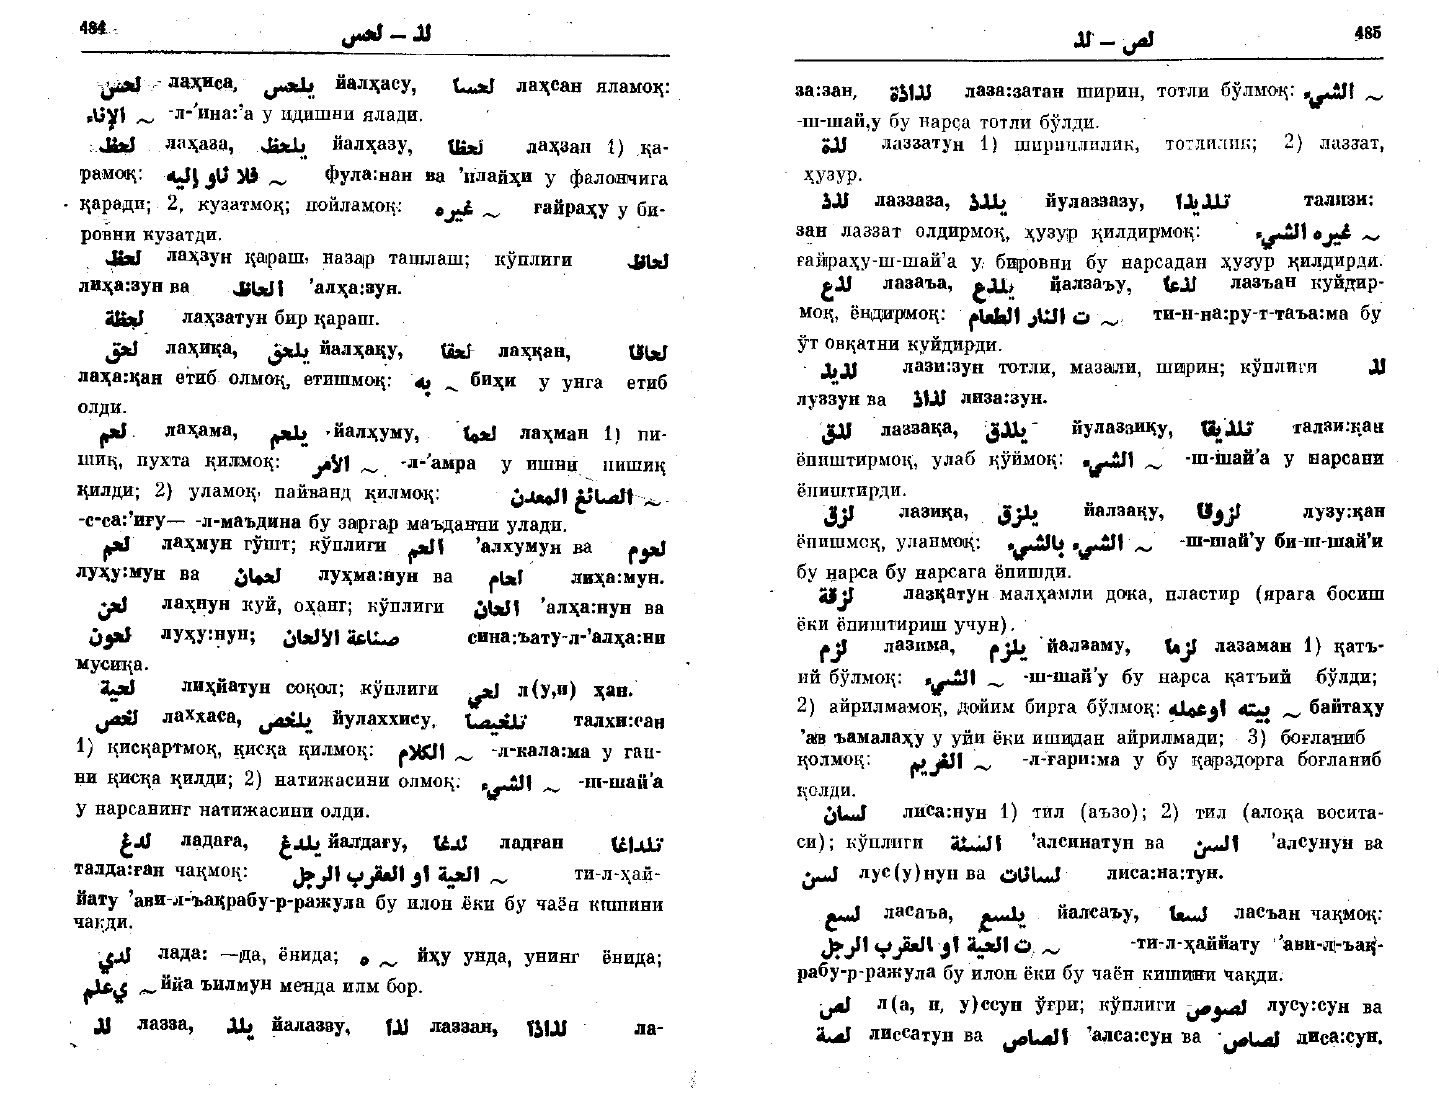 484
لحس — لذ
لحس лаҳиса, يلحس йалҳасу, لحسا лаҳсан яламоқ:
الإناء ~ -л-’ина:’а у идишни ялади.
لحظ лаҳаза, يلحظ йалҳазу, لحظا лаҳзан 1) қа-
рамоқ: فلانا و إليه ~ фула:нан ва ’илайҳи у фалончига
қаради; 2, кузатмоқ; пойламоқ: غيره ~ ғайраҳу у би-
ровни кузатди.
لحظ лаҳзун қараш, назар ташлаш; кўплиги لحاظ
лиҳа:зун ва الحاظ ’алҳа:зун.
لحظة лаҳзатун бир қараш.
لحق лаҳиқа, يلحق йалҳақу, لحقا лаҳқан, لحاقا
лаҳа:қан етиб олмоқ, етишмоқ: به ~ биҳи у унга етиб
олди.
لحم лаҳама, يلحم йалҳуму, لحما лаҳман 1) пи-
шиқ, пухта қилмоқ: الأمر ~ -л-’амра у ишни пишиқ
қилди; 2) уламоқ, пайванд қилмоқ: الصائغ المعدن ~
-с-са:’иғу— -л-маъдина бу заргар маъданни улади.
لحم лаҳмун гўшт; кўплиги الحم ’алхумун ва لحوم
луҳу:мун ва لحمان луҳма:нун ва لحام лиҳа:мун.
لحن лаҳнун куй, оҳанг; кўплиги الحان ’алҳа:нун ва
لحون луҳу:нун; صناعة الالحان сина:ъату-л-’алҳа:ни
мусиқа.
لحية лиҳйатун соқол; кўплиги لحي л(у,и) ҳан.
لخص лаххаса, يلخص йулаххису, تلخيصا талхи:сан
1) қисқартмоқ, қисқа қилмоқ: الكلام ~ -л-кала:ма у гап-
ни қисқа қилди; 2) натижасини олмоқ: الشيء ~ -ш-шай’а
у нарсанинг натижасини олди.
لدغ ладаға, يلدغ йалдағу, لدغا ладған تلداغا
талда:ған чақмоқ: الحية او العقرب الرجل ~ ти-л-ҳай-
йату ’ави-л-ъақрабу-р-ражула бу илон ёки бу чаён кишини
чақди.
لدي лада: —да, ёнида; ه ~ йҳу унда, унинг ёнида;
يعلم ~ ййа ъилмун менда илм бор.
لذ лазза, يلذ йалаззу, لذا лаззан, لذاذا ла-
لص — لذ
485
за:зан, لذاذة лаза:затан ширин, тотли бўлмоқ: الشيء ~
-ш-шай,у бу нарса тотли бўлди.
لذة лаззатун 1) ширинлилик, тотлилик; 2) лаззат,
ҳузур.
لذذ лаззаза, يلذذ йулаззазу, تلذيذا талиази:
зан лаззат олдирмоқ, ҳузур қилдирмоқ: غيره الشيء ~
ғайраҳу-ш-шай’а у бировни бу нарсадан ҳузур қилдирди.
لذع лазаъа, يلذع йалзаъу, لذعا лазъан куйдир-
моқ, ёндирмоқ: ت النار الطعام ~ ти-н-на:ру-т-таъа:ма бу
ўт овқатни куйдирди.
لذيذ лази:зун тотли, мазали, ширин; кўплиги لذ
луззун ва لذاذ лиза:зун.
لذق лаззақа, يلذق йулаззиқу, تلذيقا талзи:қан
ёпиштирмоқ, улаб қўймоқ: الشيء ~ -ш-шай’а у нарсани
ёпиштирди.
لزق лазиқа, يلزق йалзақу, لزوقا лузу:қан
ёпишмоқ, уланмоқ: الشيء بالشيء ~ -ш-шай’у би-ш-шай’и
бу нарса бу нарсага ёпишди.
لزقة лазқатун малҳамли дока, пластир (ярага босиш
ёки ёпиштириш учун).
لزم лазима, يلزم йалзаму, لزما лазаман 1) қатъ-
ий бўлмоқ: الشيء ~ -ш-шай’у бу нарса қатъий бўлди;
2) айрилмамоқ, дойим бирга бўлмоқ: بيته اوعمله ~ байтаҳу
’ав ъамалаҳу у уйи ёки ишидан айрилмади; 3) боғланиб
қолмоқ: الغريم ~ -л-ғари:ма у бу қарздорга боғланиб
қолди.
لسان лиса:нун 1) тил (аъзо); 2) тил (алоқа восита-
си); кўплиги السنة ’алсинатун ва السن ’алсунун ва
لسن лус(у)нун ва لسانات лиса:на:тун.
لسع ласаъа, يلسع йалсаъу, لسعا ласъан чақмоқ:
ت الحية او العقرب الرجل ~ -ти-л-ҳаййату ’ави-л-ъақ-
рабу-р-ражула бу илон ёки бу чаён кишини чақди.
لص л(а, и, у)ссун ўғри; кўплиги لصوص лусу:сун ва
لصة лиссатун ва الصاص ’алса:сун ва لصاص лиса:сун.